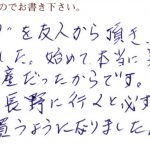 のでお書き下さい。
"を友人から頂き、
した。始めて本当に
産だったからです。
長野に行くと必ず
買うようになりました。